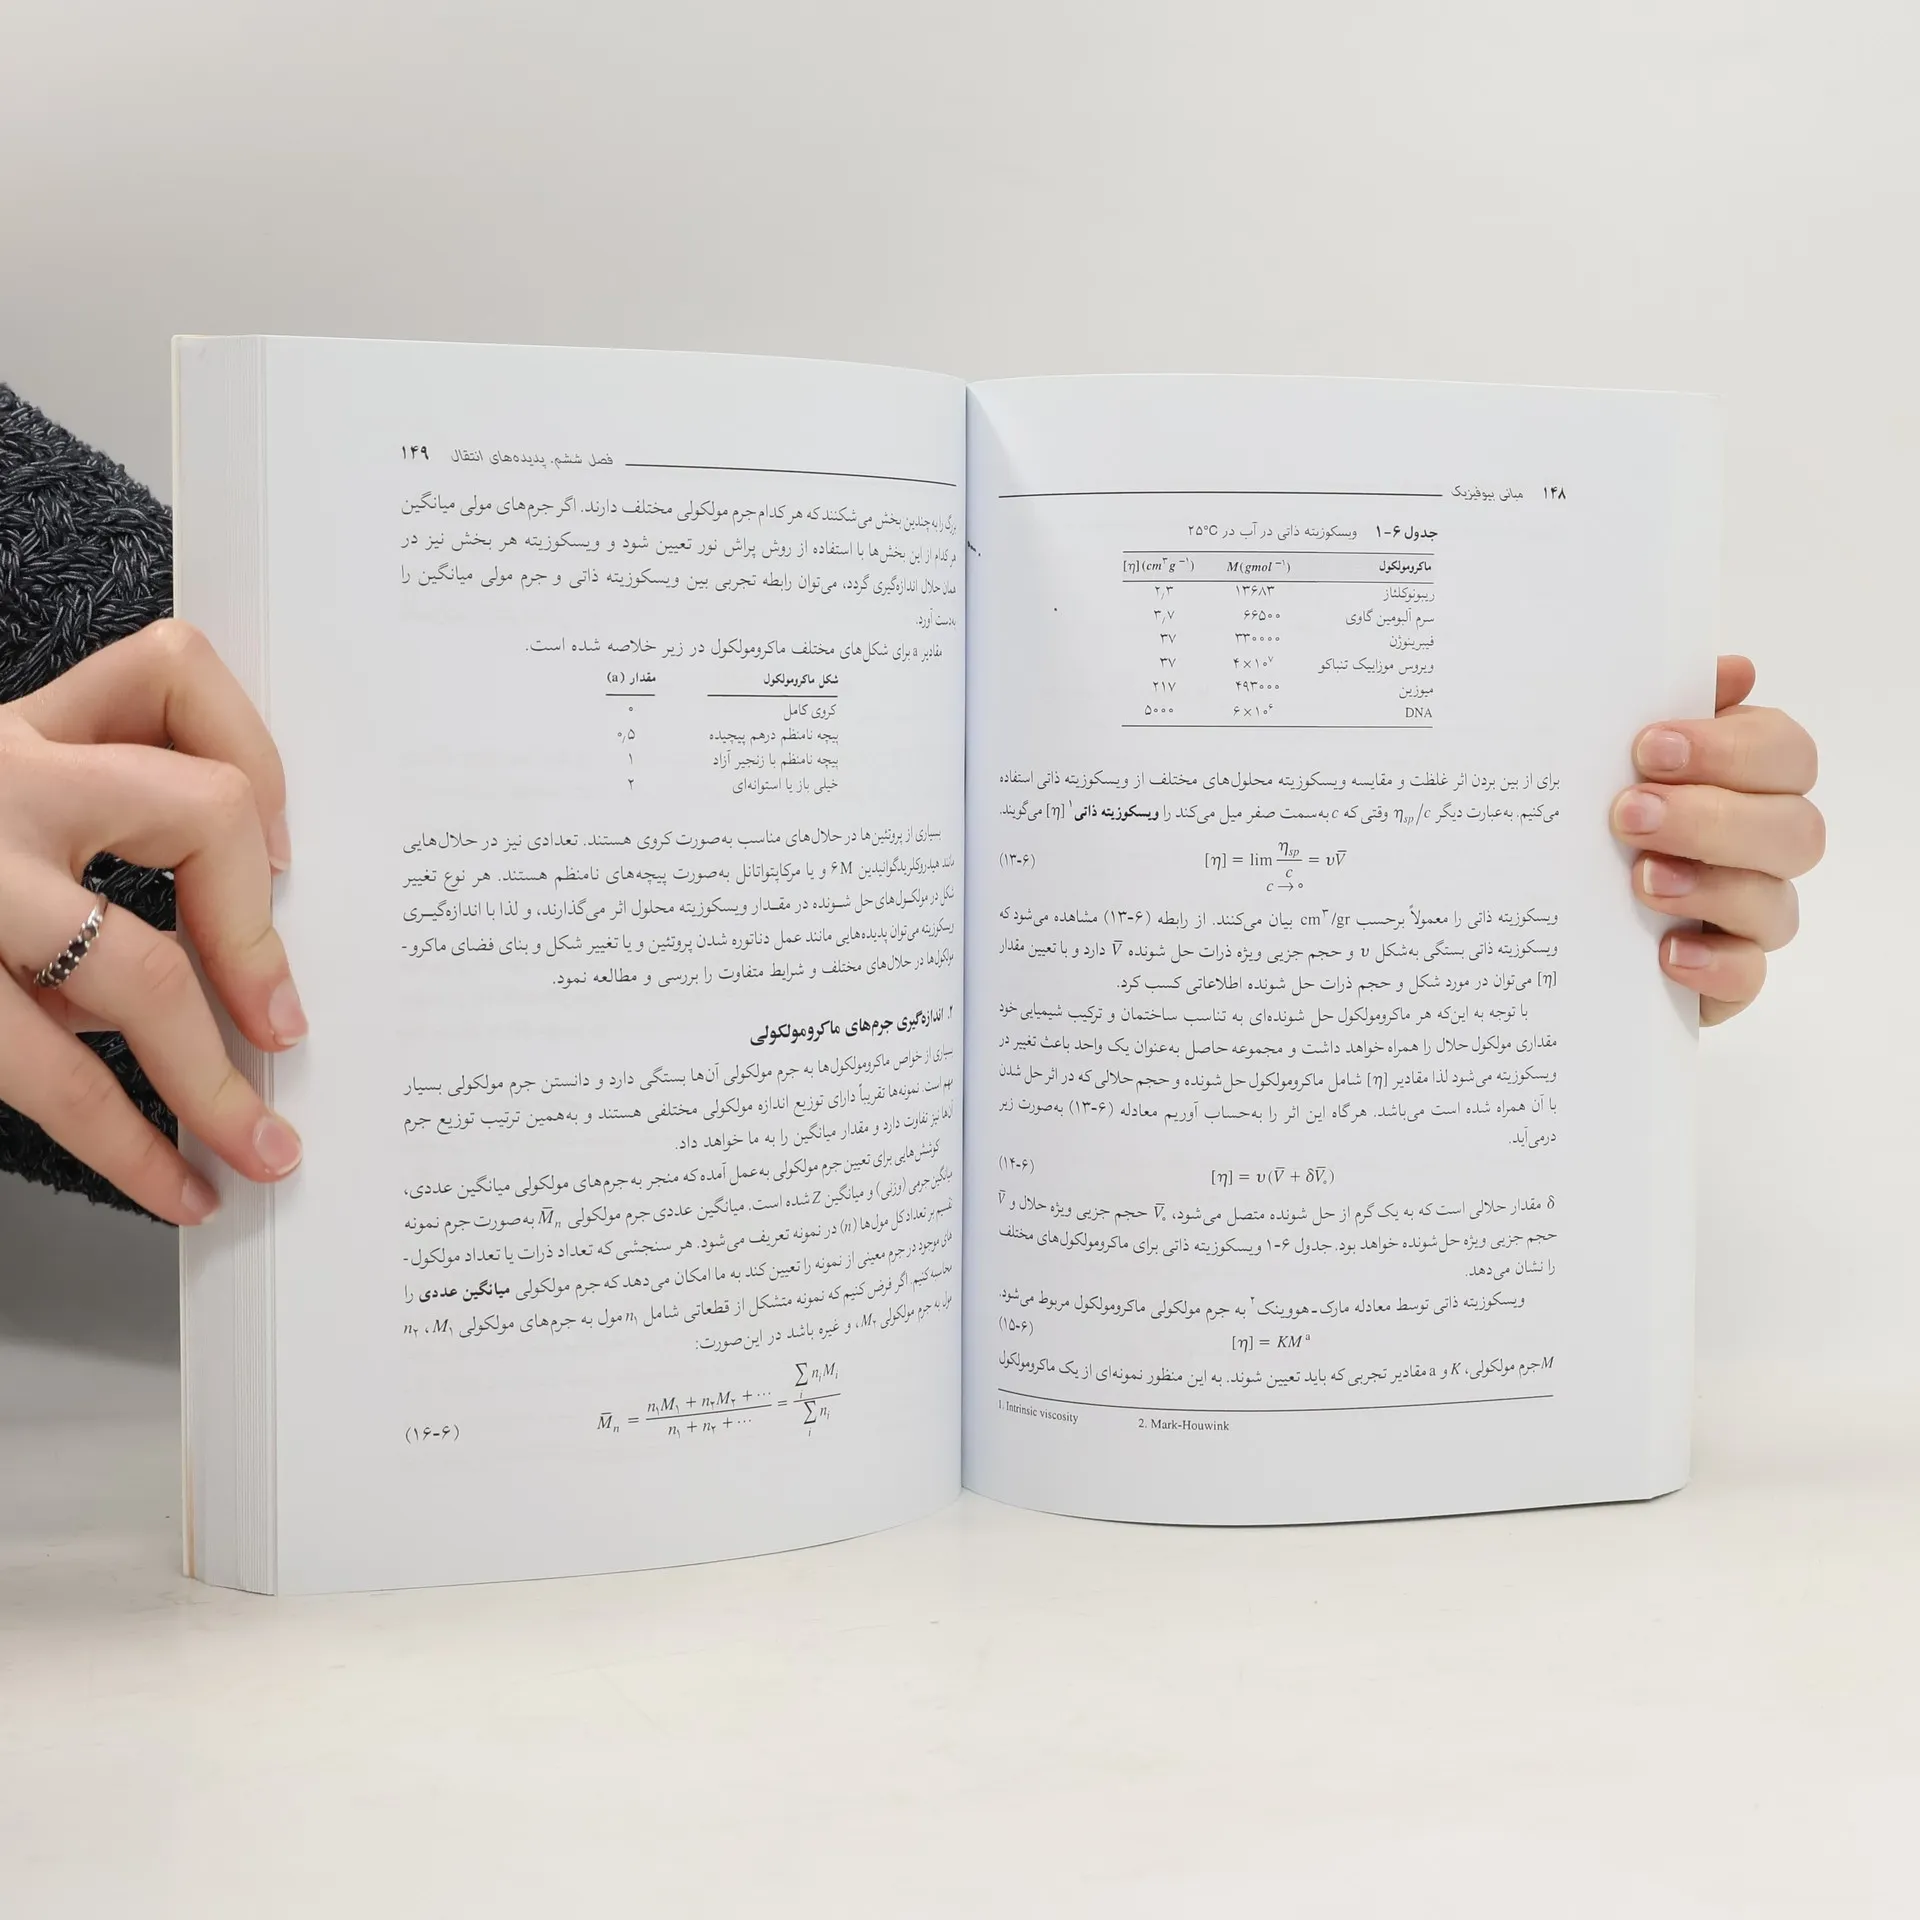 ۱۴۸ مبانی بیوفیزیک
جدول ۶-۱ ویسکوزیته ذاتی در آب در ۲۵°C
ماکرومولکول M(gmol⁻¹) [η](cm³g⁻¹)
ریبونوکلئاز ۱۳۶۸۳ ۲٫۳
سرم آلبومین گاوی ۶۶۵۰۰ ۳٫۷
فیبرینوژن ۳۳۰۰۰۰ ۳۷
ویروس موزاییک تنباکو ۴×۱۰⁷ ۳۷
میوزین ۴۹۳۰۰۰ ۲۱۷
DNA ۶×۱۰⁶ ۵۰۰۰
برای از بین بردن اثر غلظت و مقایسه ویسکوزیته محلول‌های مختلف از ویسکوزیته ذاتی استفاده
می‌کنیم. به‌عبارت دیگر ηsp/c وقتی که c به‌سمت صفر میل می‌کند را ویسکوزیته ذاتی¹ [η] می‌گویند.
[η] = lim ηsp/c = υV̄ (۶-۱۳)
c → ۰
ویسکوزیته ذاتی را معمولاً برحسب cm³/gr بیان می‌کنند. از رابطه (۶-۱۳) مشاهده می‌شود که
ویسکوزیته ذاتی بستگی به‌شکل υ و حجم جزیی ویژه ذرات حل شونده V̄ دارد و با تعیین مقدار
[η] می‌توان در مورد شکل و حجم ذرات حل شونده اطلاعاتی کسب کرد.
با توجه به این‌که هر ماکرومولکول حل شونده‌ای به تناسب ساختمان و ترکیب شیمیایی خود
مقداری مولکول حلال را همراه خواهد داشت و مجموعه حاصل به‌عنوان یک واحد باعث تغییر در
ویسکوزیته می‌شود لذا مقادیر [η] شامل ماکرومولکول حل‌شونده و حجم حلالی که در اثر حل شدن
با آن همراه شده است می‌باشد. هرگاه این اثر را به‌حساب آوریم معادله (۶-۱۳) به‌صورت زیر
درمی‌آید.
[η] = υ(V̄ + δV̄₀) (۶-۱۴)
δ مقدار حلالی است که به یک گرم از حل شونده متصل می‌شود، V̄₀ حجم جزیی ویژه حلال و V̄
حجم جزیی ویژه حل‌شونده خواهد بود. جدول ۶-۱ ویسکوزیته ذاتی برای ماکرومولکول‌های مختلف
را نشان می‌دهد.
ویسکوزیته ذاتی توسط معادله مارک-هووینک² به جرم مولکولی ماکرومولکول مربوط می‌شود.
[η] = KMᵃ (۶-۱۵)
M جرم مولکولی، K و a مقادیر تجربی که باید تعیین شوند. به این منظور نمونه‌ای از یک ماکرومولکول
1. Intrinsic viscosity 2. Mark-Houwink
فصل ششم. پدیده‌های انتقال ۱۴۹
بزرگ را به چندین بخش می‌شکنند که هر کدام جرم مولکولی مختلف دارند. اگر جرم‌های مولی میانگین
هر کدام از این بخش‌ها با استفاده از روش پراش نور تعیین شود و ویسکوزیته هر بخش نیز در
همان حلال اندازه‌گیری گردد، می‌توان رابطه تجربی بین ویسکوزیته ذاتی و جرم مولی میانگین را
به‌دست آورد.
مقادیر a برای شکل‌های مختلف ماکرومولکول در زیر خلاصه شده است.
شکل ماکرومولکول مقدار (a)
کروی کامل ۰
پیچه نامنظم درهم پیچیده ۰٫۵
پیچه نامنظم با زنجیر آزاد ۱
خیلی باز یا استوانه‌ای ۲
بسیاری از پروتئین‌ها در حلال‌های مناسب به‌صورت کروی هستند. تعدادی نیز در حلال‌هایی
مانند هیدروکلریدگوانیدین ۶M و یا مرکاپتواتانل به‌صورت پیچه‌های نامنظم هستند. هر نوع تغییر
شکل در مولکول‌های حل شونده در مقدار ویسکوزیته محلول اثر می‌گذارند، و لذا با اندازه‌گیری
ویسکوزیته می‌توان پدیده‌هایی مانند عمل دناتوره شدن پروتئین و یا تغییر شکل و بنای فضای ماکرو-
مولکول‌ها در حلال‌های مختلف و شرایط متفاوت را بررسی و مطالعه نمود.
۲. اندازه‌گیری جرم‌های ماکرومولکولی
بسیاری از خواص ماکرومولکول‌ها به جرم مولکولی آن‌ها بستگی دارد و دانستن جرم مولکولی بسیار
مهم است. نمونه‌ها تقریباً دارای توزیع اندازه مولکولی مختلفی هستند و به‌همین ترتیب توزیع جرم
آن‌ها نیز تفاوت دارد و مقدار میانگین را به ما خواهد داد.
کوشش‌هایی برای تعیین جرم مولکولی به‌عمل آمده که منجر به جرم‌های مولکولی میانگین عددی،
میانگین جرمی (وزنی) و میانگین Z شده است. میانگین عددی جرم مولکولی M̄n به‌صورت جرم نمونه
تقسیم بر تعداد کل مول‌ها (n) در نمونه تعریف می‌شود. هر سنجشی که تعداد ذرات یا تعداد مولکول-
های موجود در جرم معینی از نمونه را تعیین کند به ما امکان می‌دهد که جرم مولکولی میانگین عددی را
محاسبه کنیم. اگر فرض کنیم که نمونه متشکل از قطعاتی شامل n۱ مول به جرم‌های مولکولی M۱، n۲
مول به جرم مولکولی M۲، و غیره باشد در این‌صورت:
M̄n = (n۱M۱ + n۲M۲ + ⋯)/(n۱ + n۲ + ⋯) = (∑i niMi)/(∑i ni) (۶-۱۶)